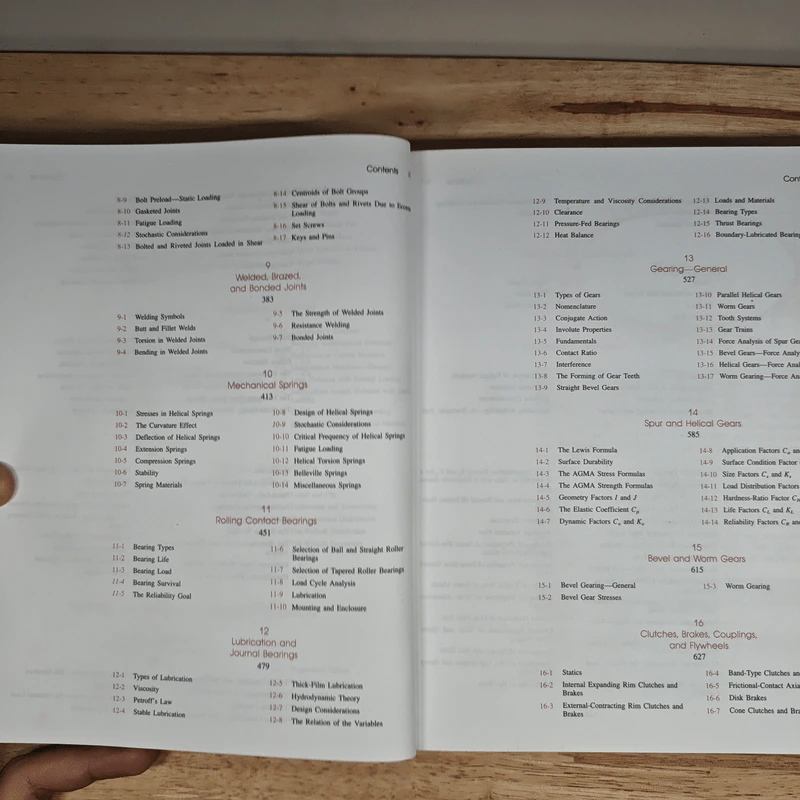 Contents
8-9 Bolt Preload—Static Loading
8-10 Gasketed Joints
8-11 Fatigue Loading
8-12 Stochastic Considerations
8-13 Bolted and Riveted Joints Loaded in Shear
8-14 Centroids of Bolt Groups
8-15 Shear of Bolts and Rivets Due to
Loading
8-16 Set Screws
8-17 Keys and Pins
9
Welded, Brazed,
and Bonded Joints
383
9-1 Welding Symbols
9-2 Butt and Fillet Welds
9-3 Torsion in Welded Joints
9-4 Bending in Welded Joints
9-5 The Strength of Welded Joints
9-6 Resistance Welding
9-7 Bonded Joints
10
Mechanical Springs
413
10-1 Stresses in Helical Springs
10-2 The Curvature Effect
10-3 Deflection of Helical Springs
10-4 Extension Springs
10-5 Compression Springs
10-6 Stability
10-7 Spring Materials
10-8 Design of Helical Springs
10-9 Stochastic Considerations
10-10 Critical Frequency of Helical Springs
10-11 Fatigue Loading
10-12 Helical Torsion Springs
10-13 Belleville Springs
10-14 Miscellaneous Springs
11
Rolling Contact Bearings
451
11-1 Bearing Types
11-2 Bearing Life
11-3 Bearing Load
11-4 Bearing Survival
11-5 The Reliability Goal
11-6 Selection of Ball and Straight Roller
Bearings
11-7 Selection of Tapered Roller Bearings
11-8 Load Cycle Analysis
11-9 Lubrication
11-10 Mounting and Enclosure
12
Lubrication and
Journal Bearings
479
12-1 Types of Lubrication
12-2 Viscosity
12-3 Petroff's Law
12-4 Stable Lubrication
12-5 Thick-Film Lubrication
12-6 Hydrodynamic Theory
12-7 Design Considerations
12-8 The Relation of the Variables
Cont
12-9 Temperature and Viscosity Considerations
12-10 Clearance
12-11 Pressure-Fed Bearings
12-12 Heat Balance
12-13 Loads and Materials
12-14 Bearing Types
12-15 Thrust Bearings
12-16 Boundary-Lubricated Bearing
13
Gearing—General
527
13-1 Types of Gears
13-2 Nomenclature
13-3 Conjugate Action
13-4 Involute Properties
13-5 Fundamentals
13-6 Contact Ratio
13-7 Interference
13-8 The Forming of Gear Teeth
13-9 Straight Bevel Gears
13-10 Parallel Helical Gears
13-11 Worm Gears
13-12 Tooth Systems
13-13 Gear Trains
13-14 Force Analysis of Spur Ge
13-15 Bevel Gears—Force Analy
13-16 Helical Gears—Force Anal
13-17 Worm Gearing—Force An
14
Spur and Helical Gears
585
14-1 The Lewis Formula
14-2 Surface Durability
14-3 The AGMA Stress Formulas
14-4 The AGMA Strength Formulas
14-5 Geometry Factors I and J
14-6 The Elastic Coefficient Cp
14-7 Dynamic Factors Cv and Kv
14-8 Application Factors Ca an
14-9 Surface Condition Factor
14-10 Size Factors Cs and Ks
14-11 Load Distribution Factors
14-12 Hardness-Ratio Factor CH
14-13 Life Factors CL and KL
14-14 Reliability Factors CR and
15
Bevel and Worm Gears
615
15-1 Bevel Gearing—General
15-2 Bevel Gear Stresses
15-3 Worm Gearing
16
Clutches, Brakes, Couplings,
and Flywheels
627
16-1 Statics
16-2 Internal Expanding Rim Clutches and
Brakes
16-3 External-Contracting Rim Clutches and
Brakes
16-4 Band-Type Clutches an
16-5 Frictional-Contact Axia
16-6 Disk Brakes
16-7 Cone Clutches and Bra